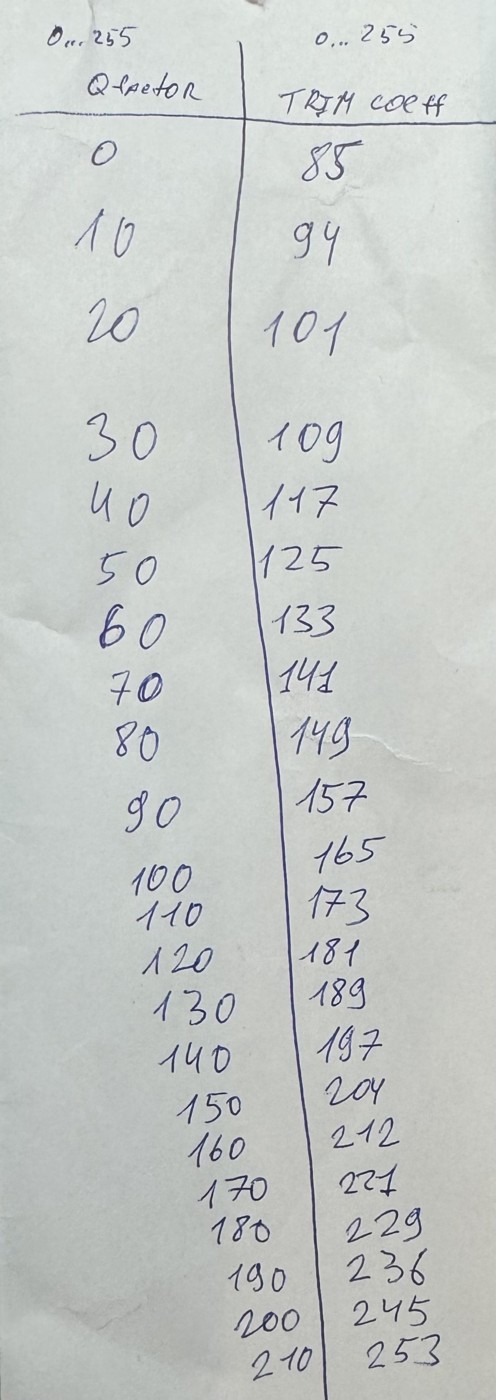 0...255 0...255
Q-factor TRIM coeff
0 85
10 94
20 101
30 109
40 117
50 125
60 133
70 141
80 149
90 157
100 165
110 173
120 181
130 189
140 197
150 204
160 212
170 221
180 229
190 236
200 245
210 253